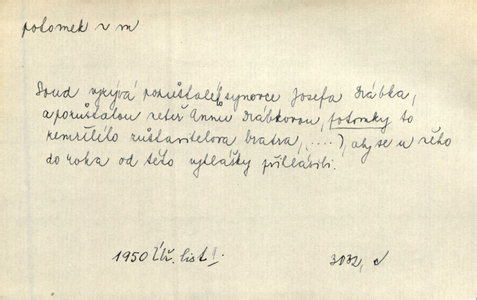 potomek v m
Soud vyzývá pozůstalého synovce Josefa Drábka,
a pozůstalou neteř Annu Drábkovou, potomky to
zemřelého zůstavitelova bratra, (....), aby se u něho
do roka od této vyhlášky přihlásili.
1950 Úř. list I. 3032,